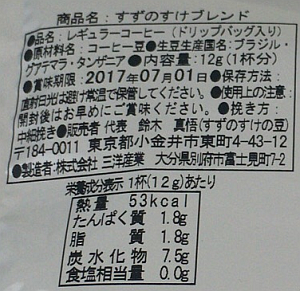 商品名:すずのすけブレンド
●品名:レギュラーコーヒー(ドリップバッグ入り)
●原材料名:コーヒー豆●生豆生産国名:ブラジル・
グアテマラ・タンザニア ●内容量:12g(1杯分)
●賞味期限:2017年07月01日●保存方法:
直射日光は避け常温で保管してください。●使用上の注意:
開封後はお早めにご賞味ください。●挽き方:
中細挽き●販売者 代表 鈴木 真悟(すずのすけの豆)
〒184-0011 東京都小金井市東町4-43-12
●製造者:株式会社 三洋産業 大分県別府市富士見町7-2
栄養成分表示 1杯(12g)あたり
熱量 53kcal
たんぱく質 1.8g
脂質 1.8g
炭水化物 7.5g
食塩相当量 0.0g